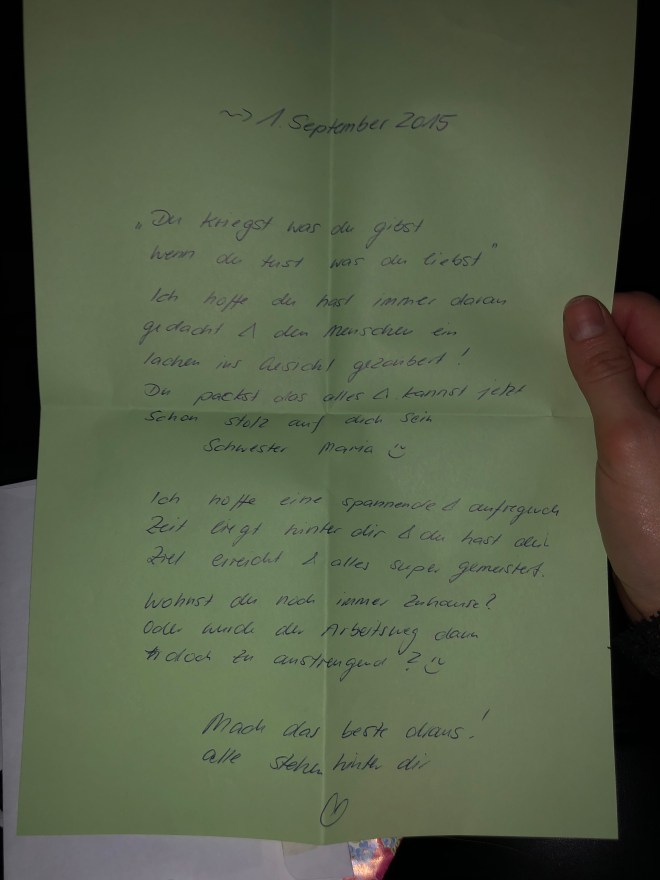 ~> 1. September 2015
„Du kriegst was du gibst
wenn du tust was du liebst"
Ich hoffe du hast immer daran
gedacht & den Menschen ein
lachen ins Gesicht gezaubert!
Du packst das alles & kannst jetzt
schon stolz auf dich sein
Schwester Maria
Ich hoffe eine spannende & aufregende
Zeit liegt hinter dir & du hast dein
Ziel erreicht & alles super gemeistert.
Wohnst du noch immer Zuhause?
Oder wurde der Arbeitsweg dann
doch zu anstrengend?
Mach das beste draus!
alle stehen hinter dir